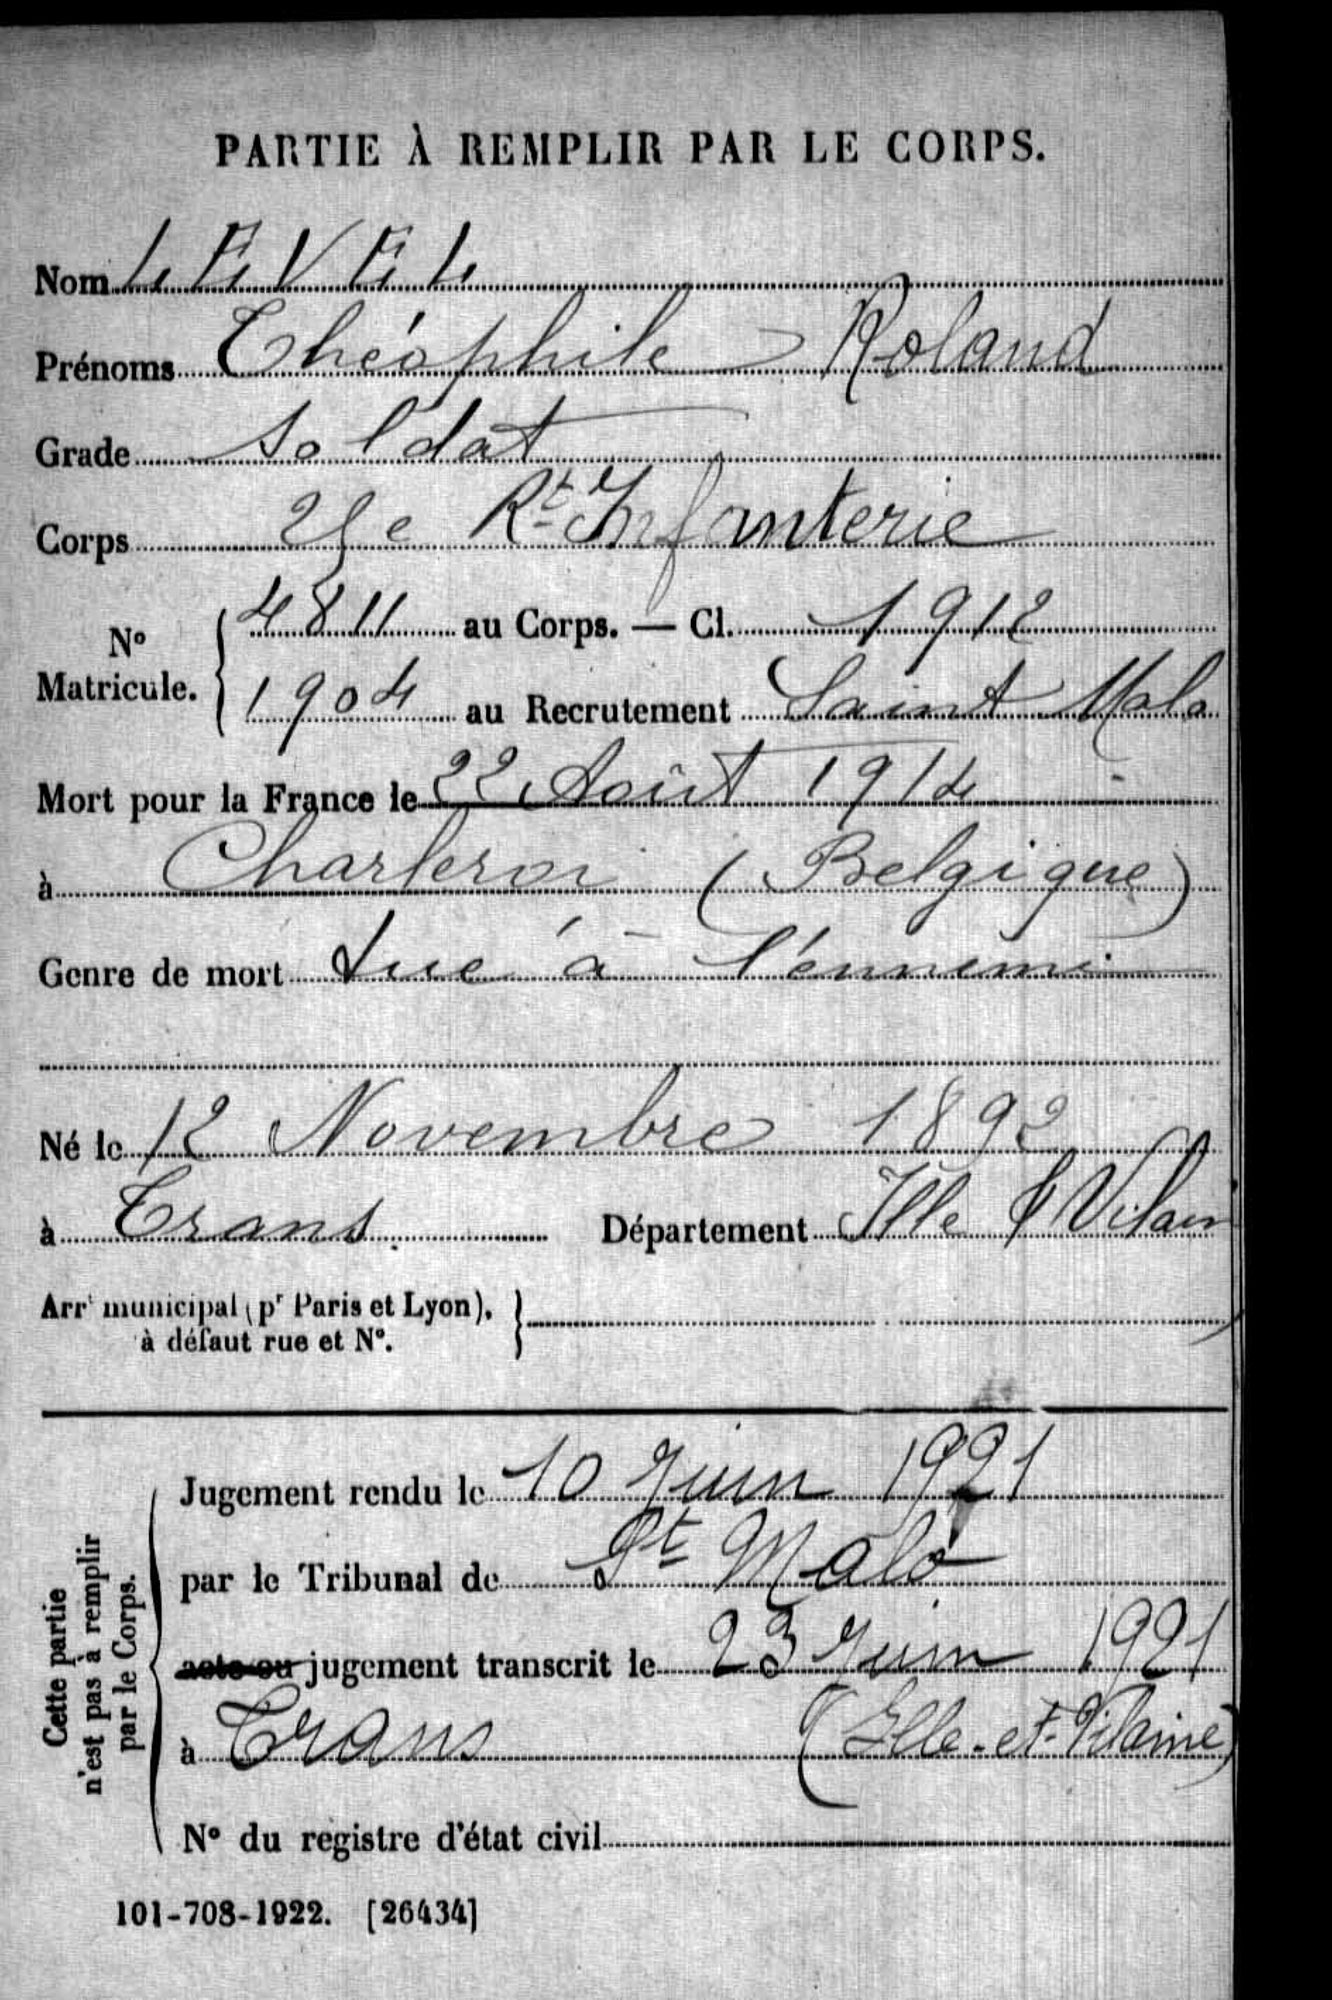 PARTIE À REMPLIR PAR LE CORPS.
Nom LEVEL
Prénoms Théophile Roland
Grade Soldat
Corps 25e Rt Infanterie
N° Matricule. { 4811 au Corps. — Cl. 1912
1904 au Recrutement Saint Malo
Mort pour la France le 22 Août 1914
à Charleroi (Belgique)
Genre de mort tué à l'ennemi
Né le 12 Novembre 1892
à Trans Département Ille & Vilain
Arrt municipal (pr Paris et Lyon), }
à défaut rue et N°.
Cette partie
n'est pas à remplir
par le Corps.
Jugement rendu le 10 Juin 1921
par le Tribunal de St Malo
acte ou jugement transcrit le 23 Juin 1921
à Trans (Ille-et-Vilaine)
N° du registre d'état civil
101-708-1922. [26434]